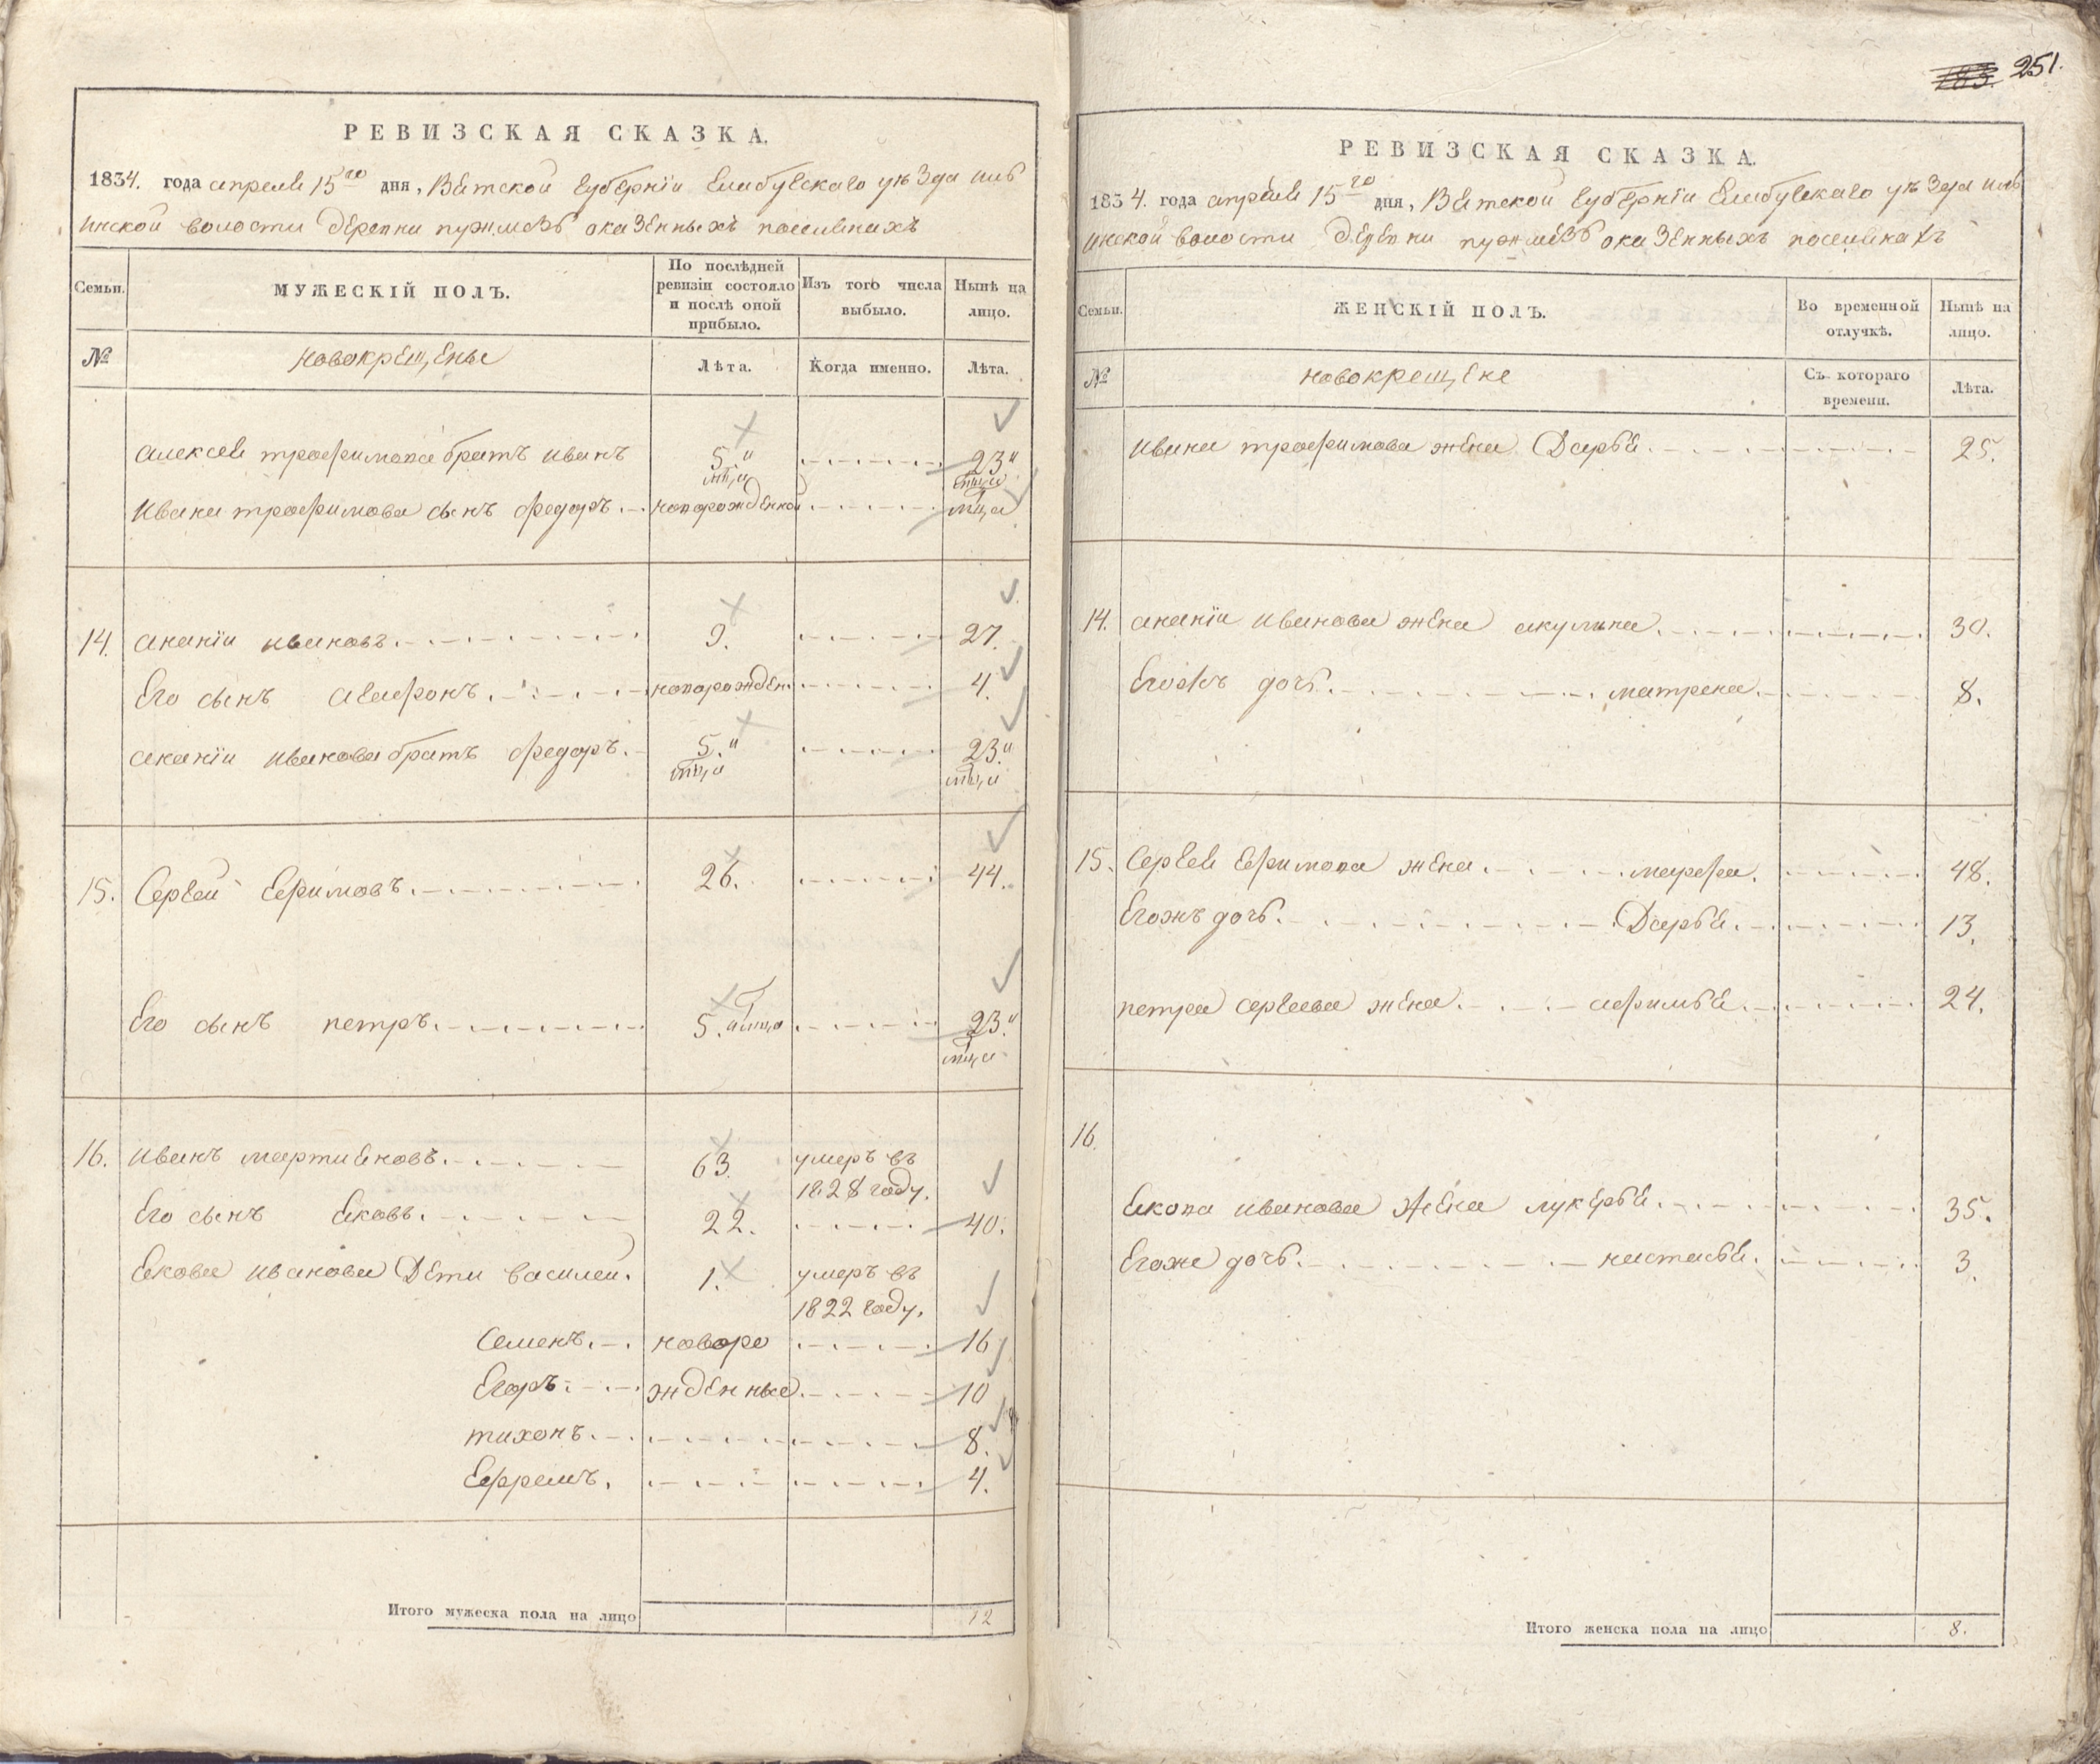 РЕВИЗСКАЯ СКАЗКА.
1834. года апреля 15го дня, Вятской губернiи Елабугскаго уѣзда иль
инской волости деревни пужмезь оказенныхъ поселянахъ
Семьи.
МУЖЕСКIЙ ПОЛЪ.
По послѣдней
ревизiи состояло
и послѣ оной
прибыло.
Изъ того числа
выбыло.
Нынѣ на
лицо.
№
новокрещены
Лѣта.
Когда именно.
Лѣта.
алексея трофимова братъ иванъ 5." 23"
ивана трофимова сынъ федоръ новорожденной
14. ананiи ивановъ 9. 27.
Его сынъ новорожден. 4.
ананiи иванова братъ федоръ. 5." 23."
15. Сергей Ефимовъ 26. 44.
Его сынъ петръ 5. 23."
16. иванъ мартиановъ 63. умеръ въ
1828 году.
Его сынъ Яковъ 22. 40.
Якова иванова Дети василей. 1. умеръ въ
1822 году.
Семенъ новоро 16
Егоръ жденные 10
тихонъ 8.
Ефремъ. 4.
Итого мужеска пола на лицо 12
251.
РЕВИЗСКАЯ СКАЗКА.
1834. года апреля 15го дня, Вятской губернiи Елабугскаго уѣзда иль
инской волости деревни пужмезь оказенныхъ поселянахъ
Семьи.
ЖЕНСКIЙ ПОЛЪ.
Во временной
отлучкѣ.
Нынѣ на
лицо.
№
новокрещене
Съ котораго
времени.
Лѣта.
ивана трофимова жена Дарья 25.
14. ананiи иванова жена акулина 30.
Егожъ дочь матрена 8.
15. Сергея Ефимова жена марфа. 48.
Егожъ дочь Дарья 13.
петра сергеева жена афимья 24.
16.
Якова иванова жена лукерья 35.
Егоже дочь настасья. 3.
Итого женска пола на лицо 8.